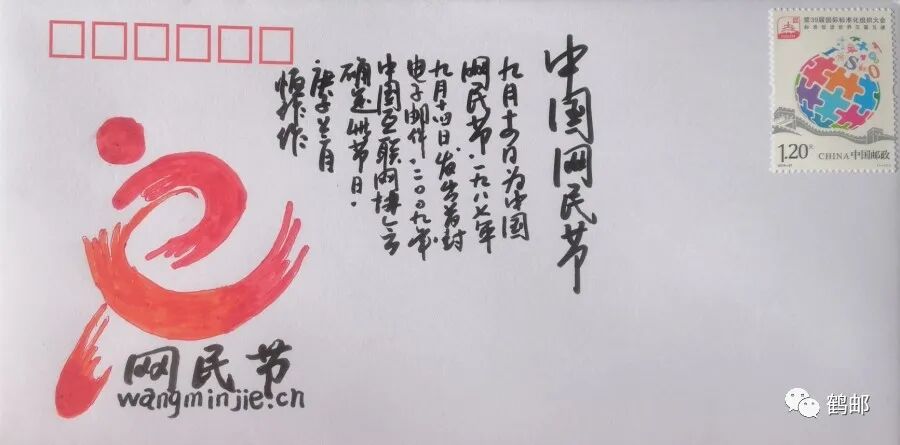 中国网民节
九月十四日为中国
网民节.一九八七年
九月十四日,发出首封
电子邮件.二〇〇九年
中国互联网协会
确定此节日.
庚子兰月
作
第39届国际标准化组织大会
标准促进世界互联互通
1.20元
CHINA 中国邮政
网民节
wangminjie.cn
鹤邮